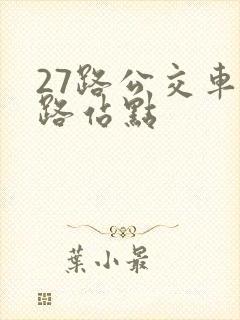 27路公交車
路佔點
葉小最